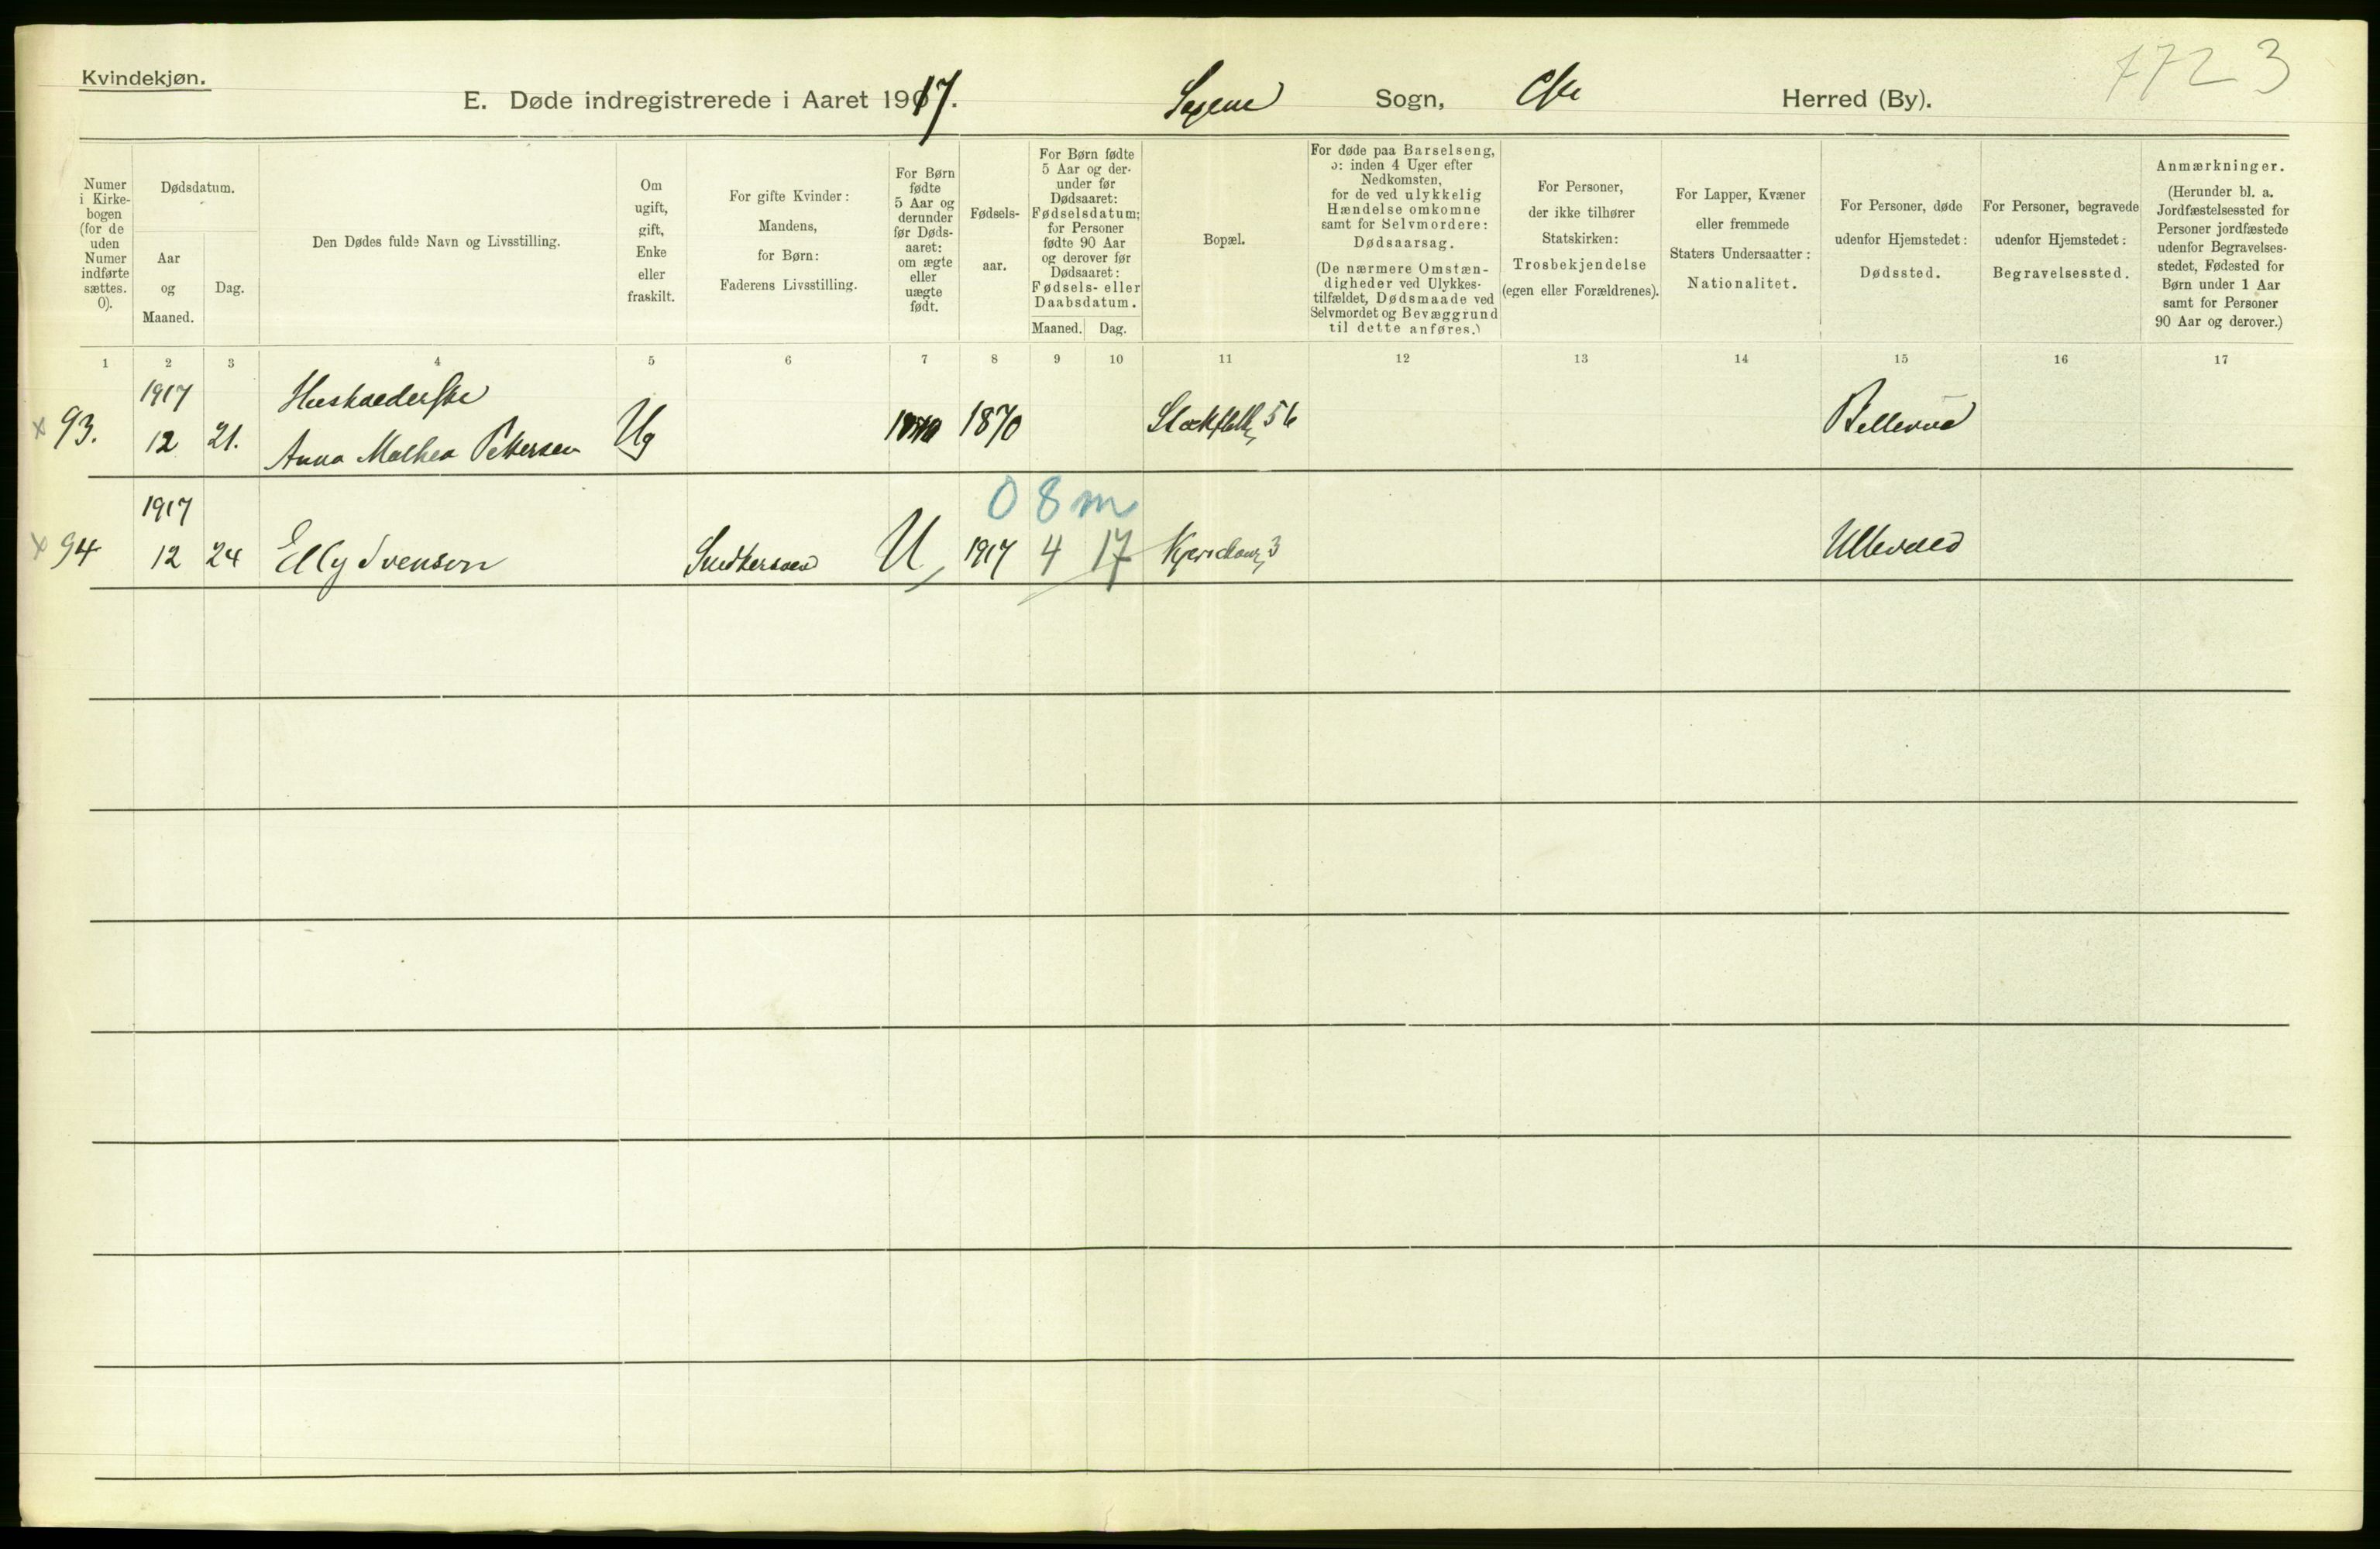 Kvindekjøn.
7723
E. Døde indregistrerede i Aaret 1917. Sagene Sogn, Chr Herred (By).
Numer i Kirke-bogen (for de uden Numer indførte sættes. 0).
Dødsdatum.
Aar og Maaned.
Dag.
Den Dødes fulde Navn og Livsstilling.
Om ugift, gift, Enke eller fraskilt.
For gifte Kvinder: Mandens, for Børn: Faderens Livsstilling.
For Børn fødte 5 Aar og derunder før Døds-aaret: om ægte eller uægte født.
Fødsels-aar.
For Børn fødte 5 Aar og der-under før Dødsaaret: Fødselsdatum; for Personer fødte 90 Aar og derover før Dødsaaret: Fødsels- eller Daabsdatum.
Maaned. Dag.
Bopæl.
For døde paa Barselseng, ɔ: inden 4 Uger efter Nedkomsten, for de ved ulykkelig Hændelse omkomne samt for Selvmordere: Dødsaarsag.
(De nærmere Omstæn-digheder ved Ulykkes-tilfældet, Dødsmaade ved Selvmordet og Bevæggrund til dette anføres.)
For Personer, der ikke tilhører Statskirken: Trosbekjendelse (egen eller Forældrenes).
For Lapper, Kvæner eller fremmede Staters Undersaatter: Nationalitet.
For Personer, døde udenfor Hjemstedet: Dødssted.
For Personer, begravede udenfor Hjemstedet: Begravelsessted.
Anmærkninger.
(Herunder bl. a. Jordfæstelsessted for Personer jordfæstede udenfor Begravelses-stedet, Fødested for Børn under 1 Aar samt for Personer 90 Aar og derover.)
1 2 3 4 5 6 7 8 9 10 11 12 13 14 15 16 17
1917 Husholderske
x 93. 12 21. Anna Mathea Pettersen Ug 1870 56 Bellevue
1917 0 8 m
x 94 12 24 Elly Svenson U 1917 4 17 3 Ullevaal